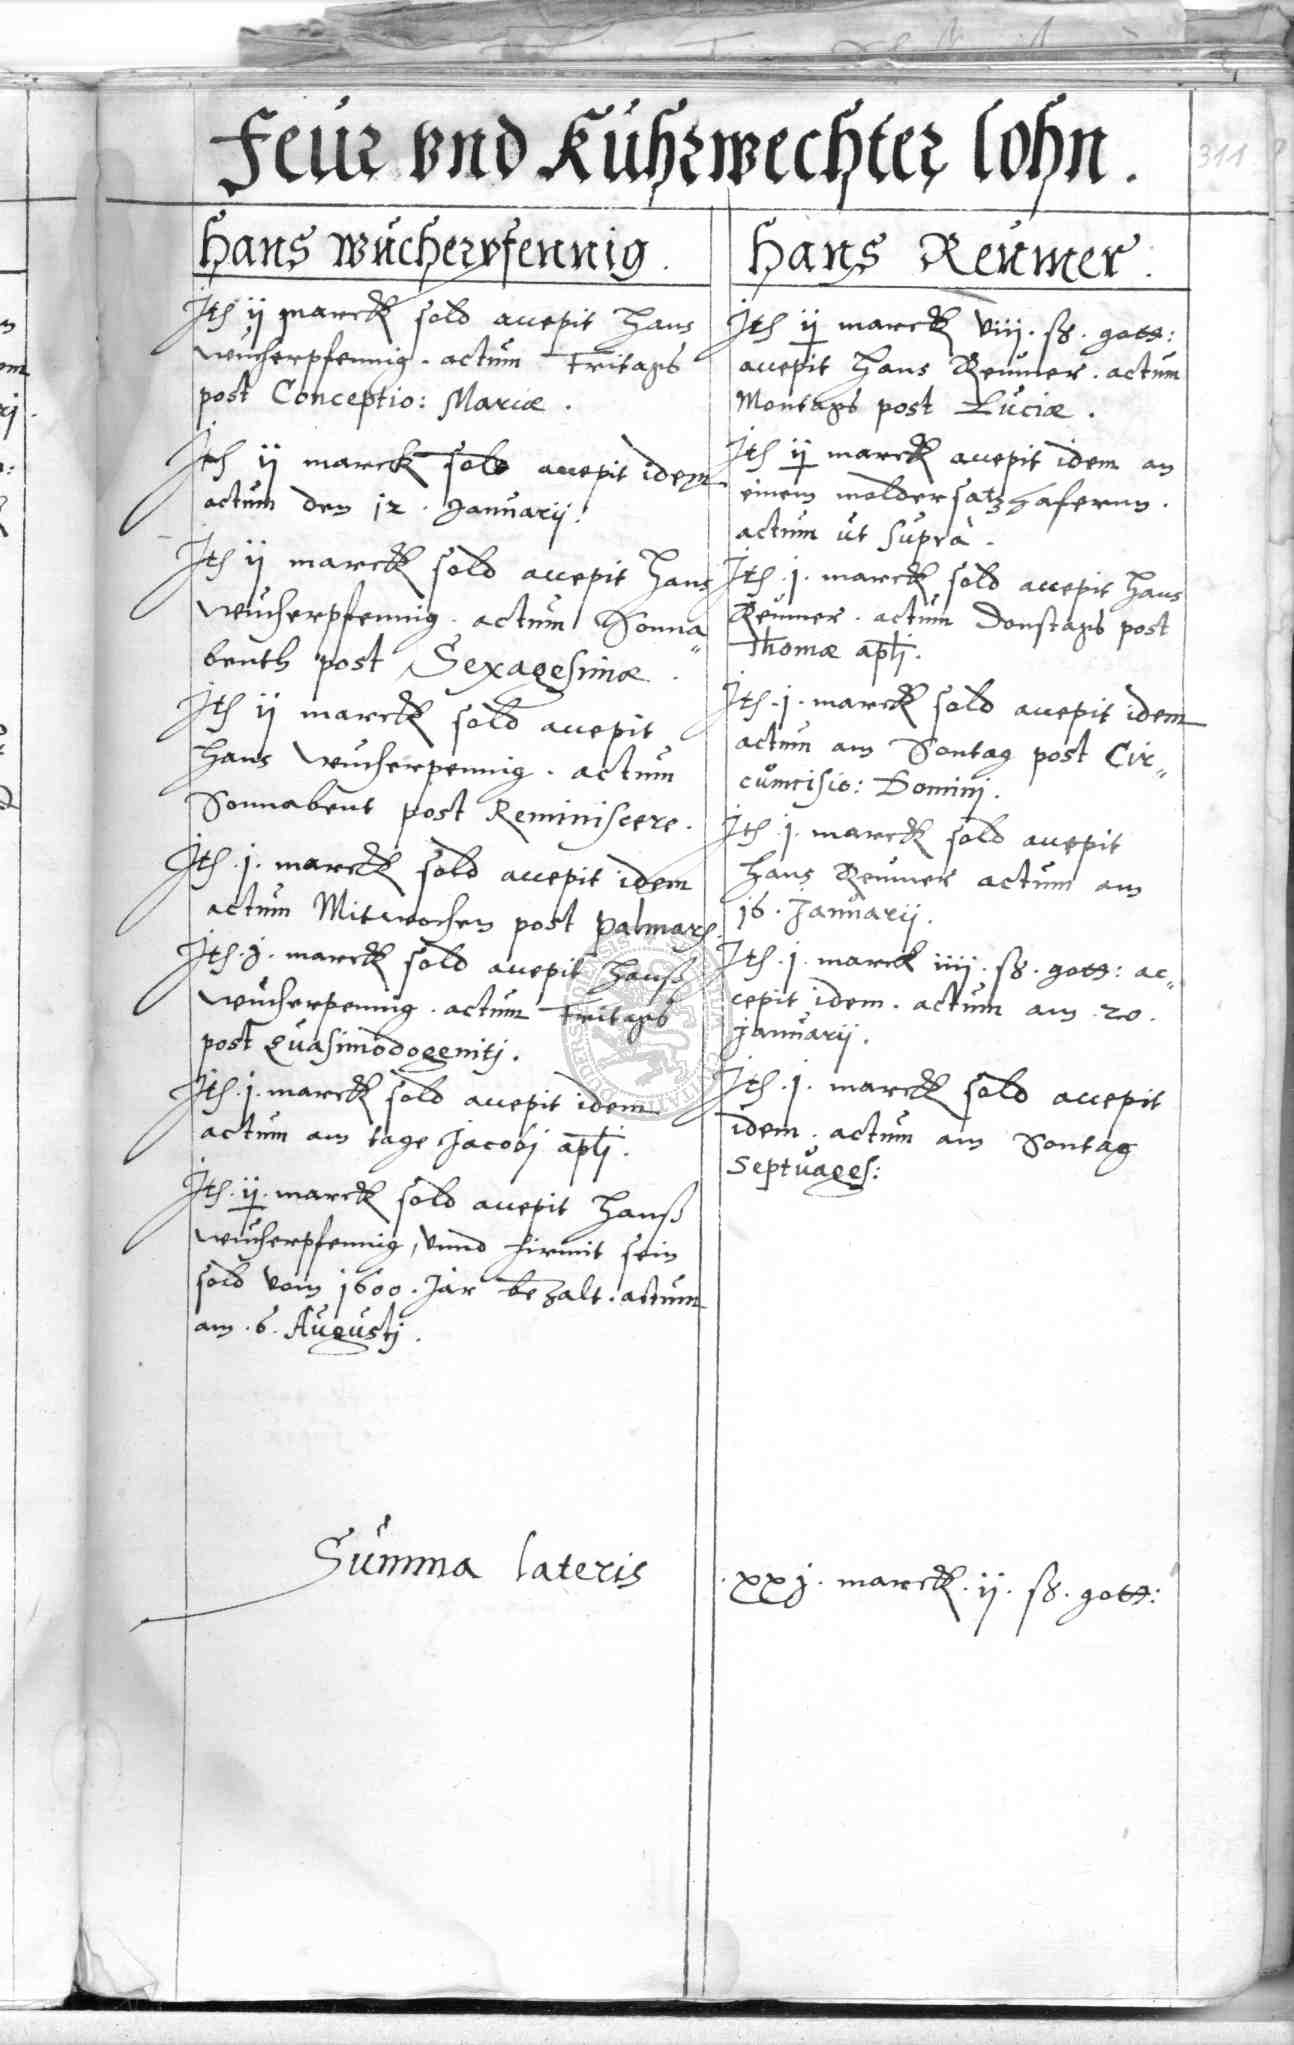 Feur vnd Kuhrwechter lohn.
311
Hans Wucherpfennig.
Jth ij marck sold accepit Hans
Wucherpfennig. actum Fritags
post Conceptio: Mariæ.
Jth ij marck sold accepit idem
actum den 12. Januarij.
Jth ij marck sold accepit Hans
Wucherpfennig. actum Sonna„
benth post Sexagesimæ.
Jth ij marck sold accepit
Hans Wucherpennig. actum
Sonnabent post Reminiscere.
Jth .j. marck sold accepit idem
actum Mitwochen post Palmarh.
Jth .j. marck sold accepit Hanß
Wucherpennig. actum Fritags
post Quasimodogenitj.
Jth .j. marck sold accepit idem
actum am tage Jacobj aptj.
Jth .ij. marck sold accepit Hanß
Wucherpfennig, vnnd hirmit sein
sold vom 1600. Jar bezalt. actum
am .6. Augustj.
Hans Reumer.
Jth ij marck viij. ß. gott:
accepit Hans Reumer. actum
Montags post Luciæ.
Jth ij marck accepit idem an
einem moldersatz hafernn.
actum ut suprà.
Jth .j. marck sold accepit Hans
Reumer. actum Donstags post
Thomæ aptj.
Jth .j. marck sold accepit idem
actum am Sontag post Cir„
cumcisio: Dominj.
Jth .j. marck sold accepit
Hans Reumer actum am
16. Januarij.
Jth .j. marck iiij. ß. gott: ac„
cepit idem. actum am .20.
Januarij.
Jth .j. marck sold accepit
idem. actum am Sontag
Septuages:
Summa lateris .xxj. marck .ij. ß. gott: